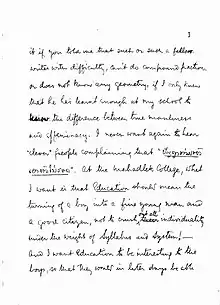 3
it if you told me that such or such a fellow
writes with difficulty, can't do compound fractions
or does not know any geometry, if I only knew
that he has learnt enough at my school to
know the difference between true manliness
and effeminacy. I never want again to hear
"clever" people complaining that "
". At the Mahadeek College, what
I want is that Education should mean the
turning of a boy into a fine young man and
a good citizen, not to crush out all individuality
under the weight of Syllabus and System! —
and I want Education to be interesting to the
boys, so that they would in later days be able